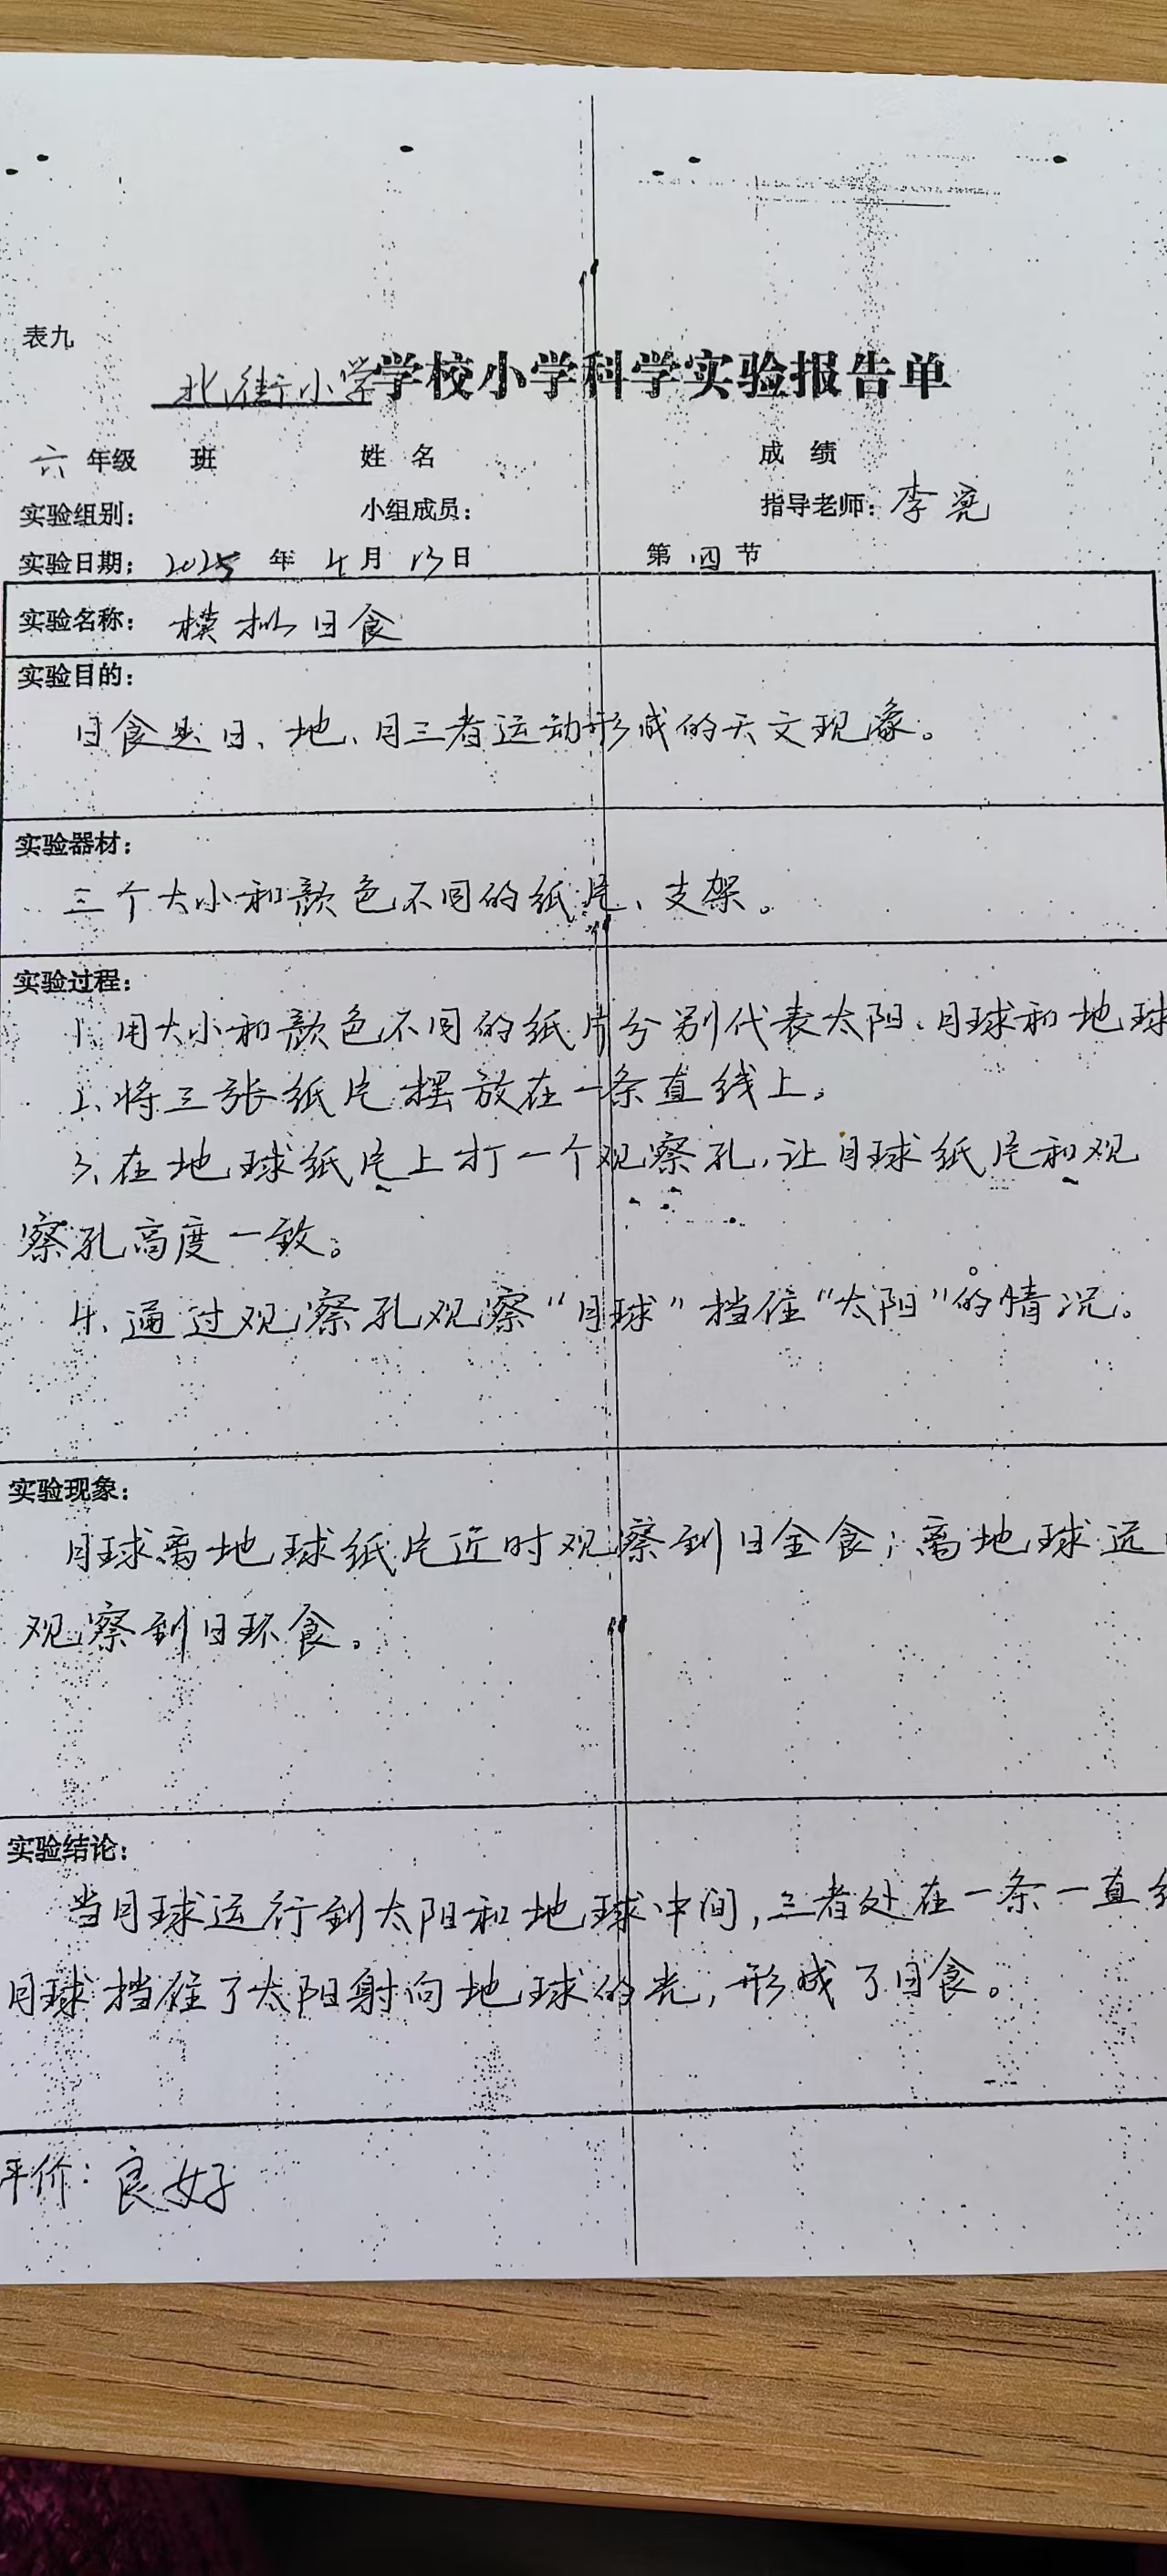 表九
北街小学学校小学科学实验报告单
六 年级 班 姓 名 成 绩
实验组别： 小组成员： 指导老师：李亮
实验日期：2025 年 4 月 13 日 第 四 节
实验名称： 模拟日食
实验目的：
日食是日、地、月三者运动形成的天文现像。
实验器材：
三个大小和颜色不同的纸片、支架。
实验过程：
1、用大小和颜色不同的纸片分别代表太阳、月球和地球
2、将三张纸片摆放在一条直线上。
3、在地球纸片上打一个观察孔，让月球纸片和观
察孔高度一致。
4、通过观察孔观察“月球”挡住“太阳”的情况。
实验现象：
月球离地球纸片近时观察到日全食；离地球远
观察到日环食。
实验结论：
当月球运行到太阳和地球中间，三者处在一条一直
月球挡住了太阳射向地球的光，形成了日食。
评价：良好